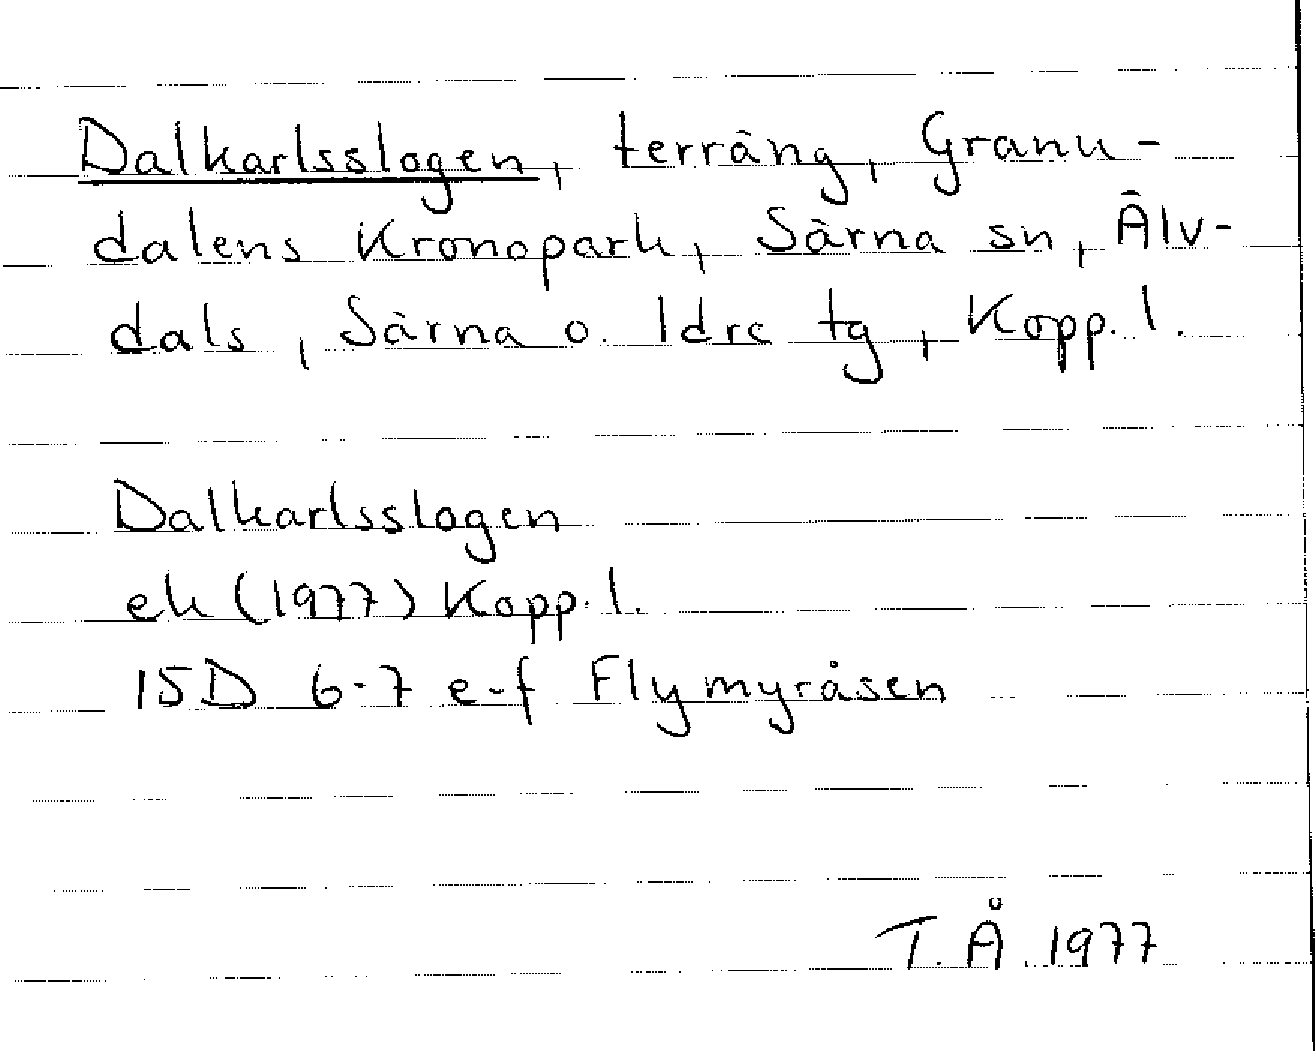 Dalkarlsslogen, terräng, Granu-
dalens Kronopark, Särna sn, Älv-
dals, Särna o. Idre tg, Kopp. l.
Dalkarlsslogen
ek (1977) Kopp. l.
15D 6-7 e-f Flymyråsen
T. Å. 1977